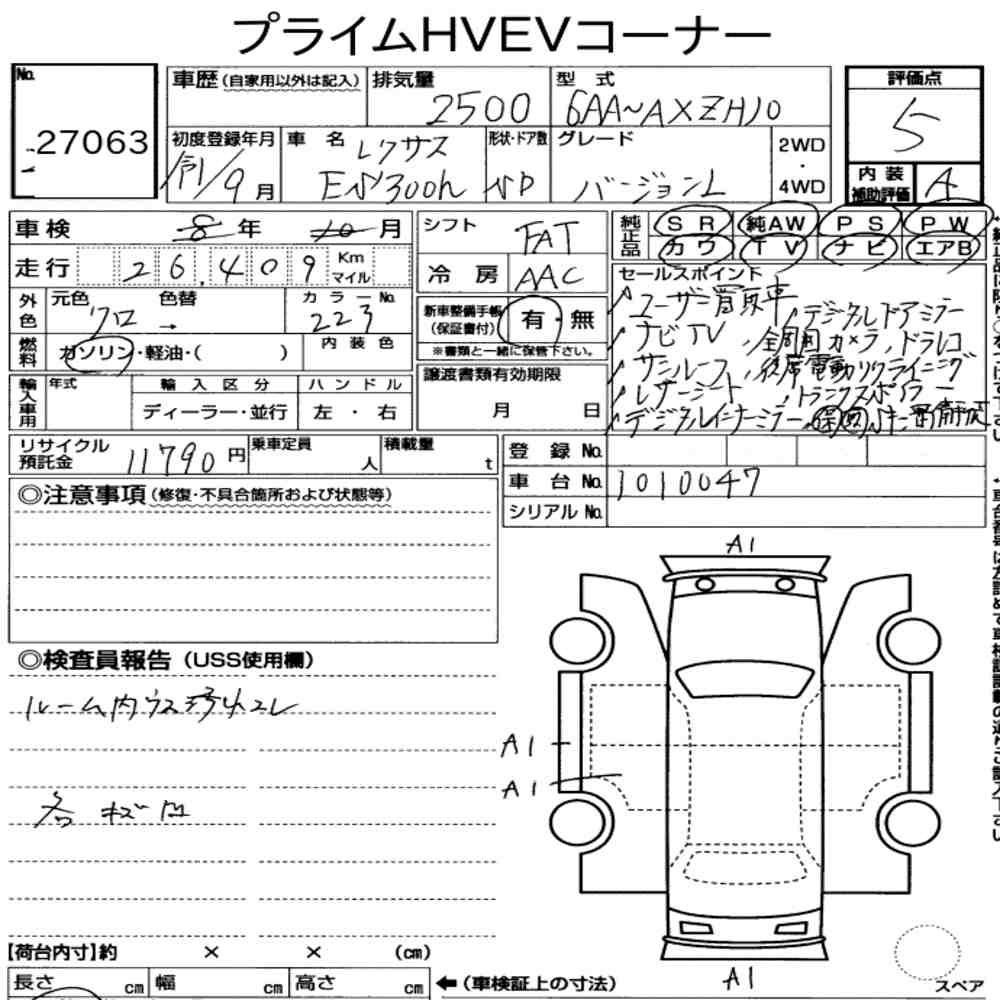 プライムHVEVコーナー
No. 27063
車歴 (自家用以外は記入)
排気量 2500
型式 6AA~AXZH10
評価点 5
初度登録年月 R1/9月
車名 レクサス
ES300h
形状・ドア数
グレード バージョンL
2WD・4WD
内装補助評価 A
車検 8年 10月
シフト FAT
純正品 SR 純AW PS PW
カワ TV ナビ エアB
走行 26,409 Km マイル
冷房 AAC
セールスポイント
ユーザー買取車
デジタルドアミラー
ナビTV 全周囲カメラ, ドラレコ
サンルーフ 後席電動リクライニング
レザーシート トランクスポイラー
デジタルインナーミラー
外色 元色 クロ → 色替
カラーNo. 223
新車整備手帳(保証書付) 有・無
※書類と一緒に保管下さい。
燃料 ガソリン・軽油・( )
内装色
譲渡書類有効期限
月 日
輸入車用 年式 輸入区分 ハンドル
ディーラー・並行 左・右
リサイクル預託金 11790円
乗車定員 人
積載量 t
登録No.
車台No. 1010047
シリアルNo.
◎注意事項 (修復・不具合箇所および状態等)
A1
◎検査員報告 (USS使用欄)
ルーム内ウス汚レコレ
A1
A1
各キズ凹
【荷台内寸】約 × × (cm)
長さ cm 幅 cm 高さ cm
←(車検証上の寸法)
A1
スペア